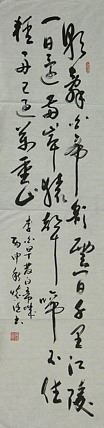 朝辭白帝彩雲間千里江陵
一日還兩岸猿聲啼不住
輕舟已過萬重山
李白早發白帝城
丙申秋書